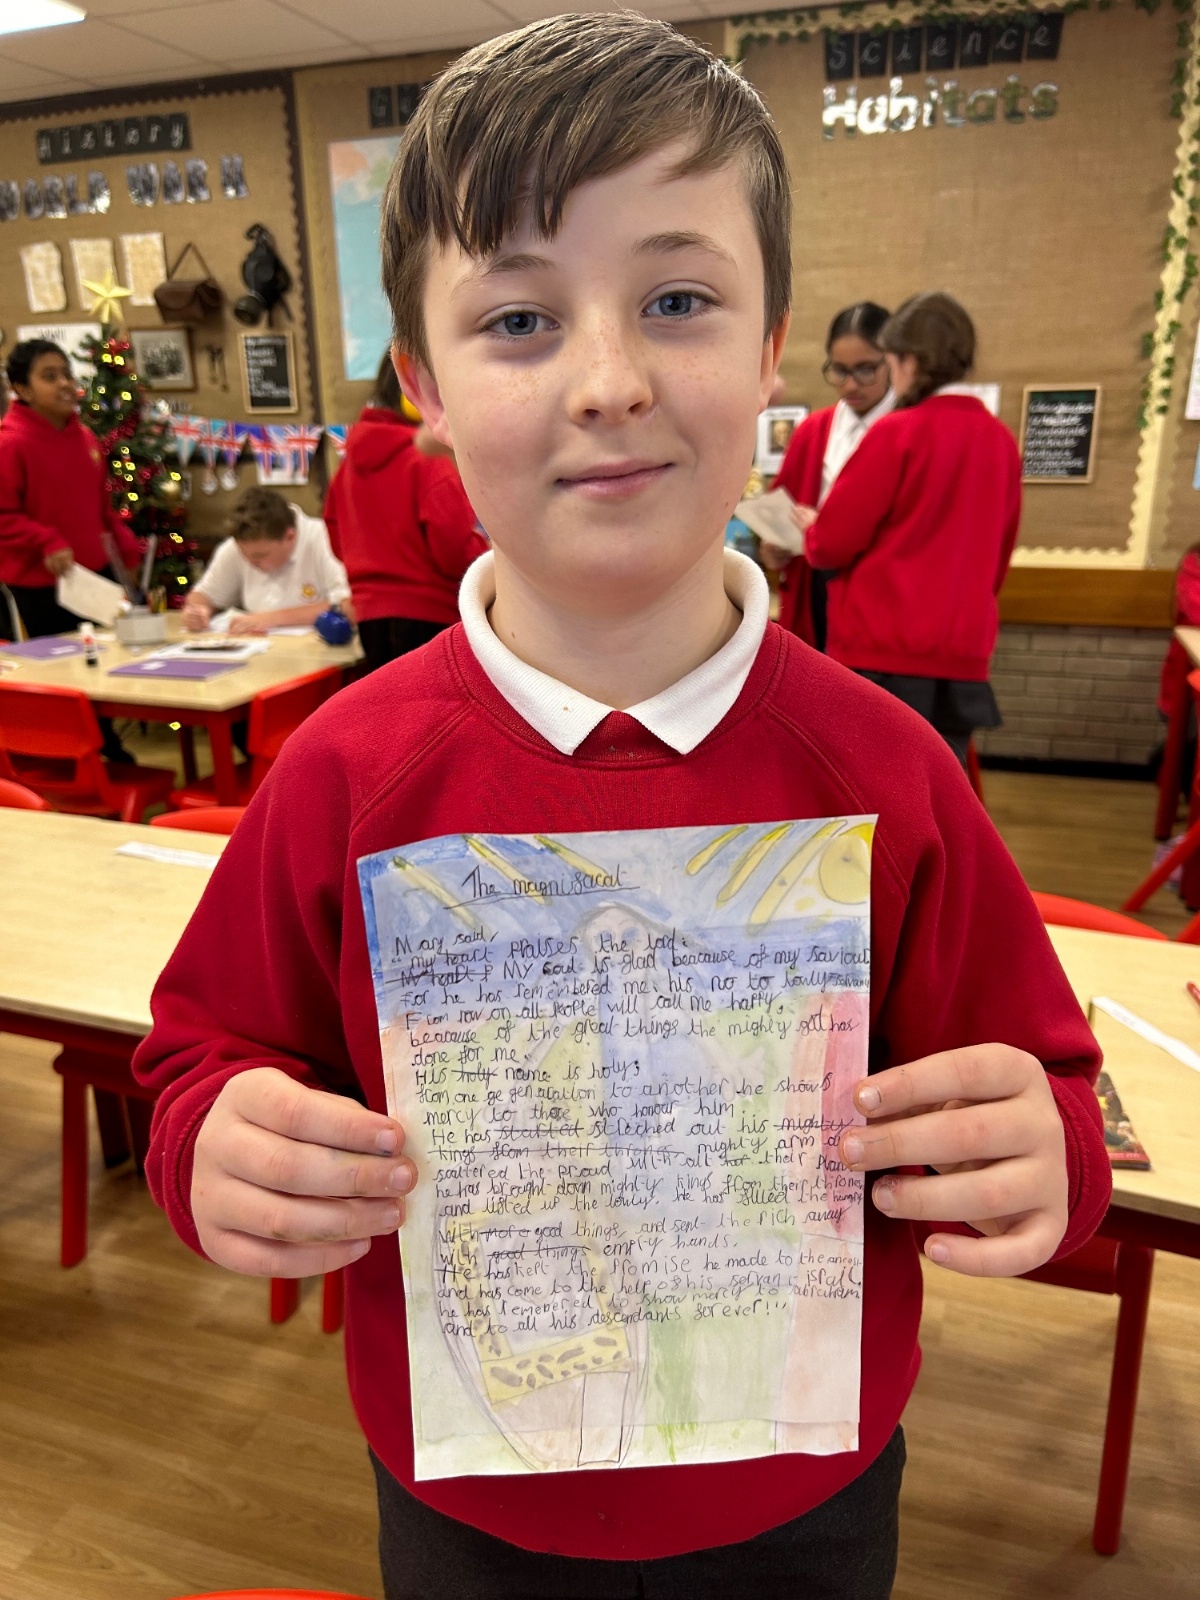 History
WORLD WAR II
Science
Habitats
The magnificat
Mary said,
"my heart praises the lord;
My heart f My soul is glad beacause of my saviour
For he has remembered me, his no to lowly servant
From now on all people will call me happy,
beacause of the great things the mighty god has
done for me.
His holy name is holy;
from one ge genaration to another he shows
mercy to those who honour him.
He has started streched out his mighty
kings from their thrones mighty arm
scattered the proud with all their plans
he has brought down mighty kings from their thrones
and lifted up the lowly. he has filled the hungry
with more good things, and sent the rich away
with good things empty hands.
He has kept the promise he made to the
and has come to the help of his servant israel.
he has remebered to show mercy to abraham
and to all his descendants forever!"